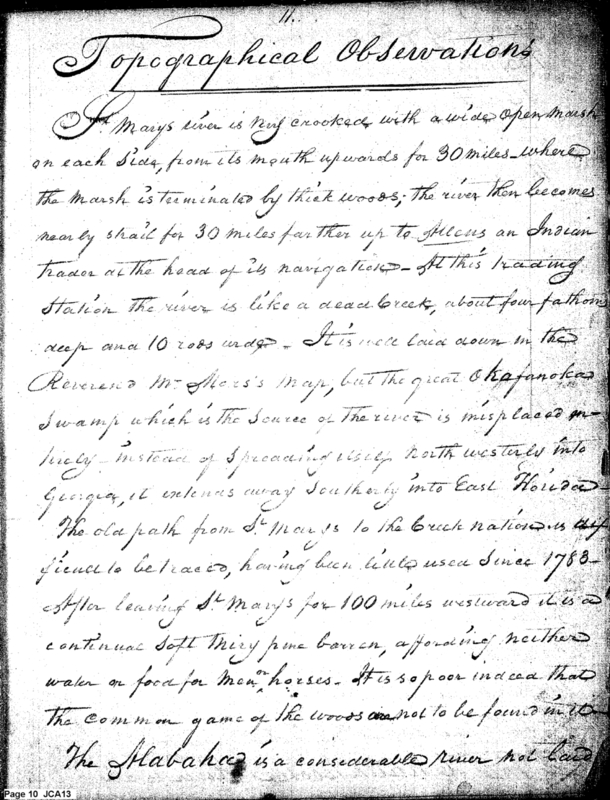 11.
Topographical Observations
St. Marys river is very crooked with a wide open marsh
on each side, from its mouth upwards for 30 miles - where
the marsh is terminated by thick woods; the river then becomes
nearly strait for 30 miles farther up to Allens an Indian
trader at the head of its navigation - At this trading
Station the river is like a dead Creek, about four fathoms
deep and 10 rods wide - It is well laid down in the
Reverend Mr Mors's map, but the great Okafanoka
Swamp which is the source of the river is misplaced en-
tirely - instead of Spreading itself North westerly into
Georgia, it extends away Southerly into East Florida -
The old path from St Marys to the Creek nation is dif
ficult to be traced, having been little used since 1783 -
After leaving St Marys for 100 miles westward it is a
continual soft pine barren, affording neither
water or food for men or horses - It is so poor indeed that
the common game of the woods are not to be found in it -
The Alabaha is a considerable river not laid
Page 10 JCA13